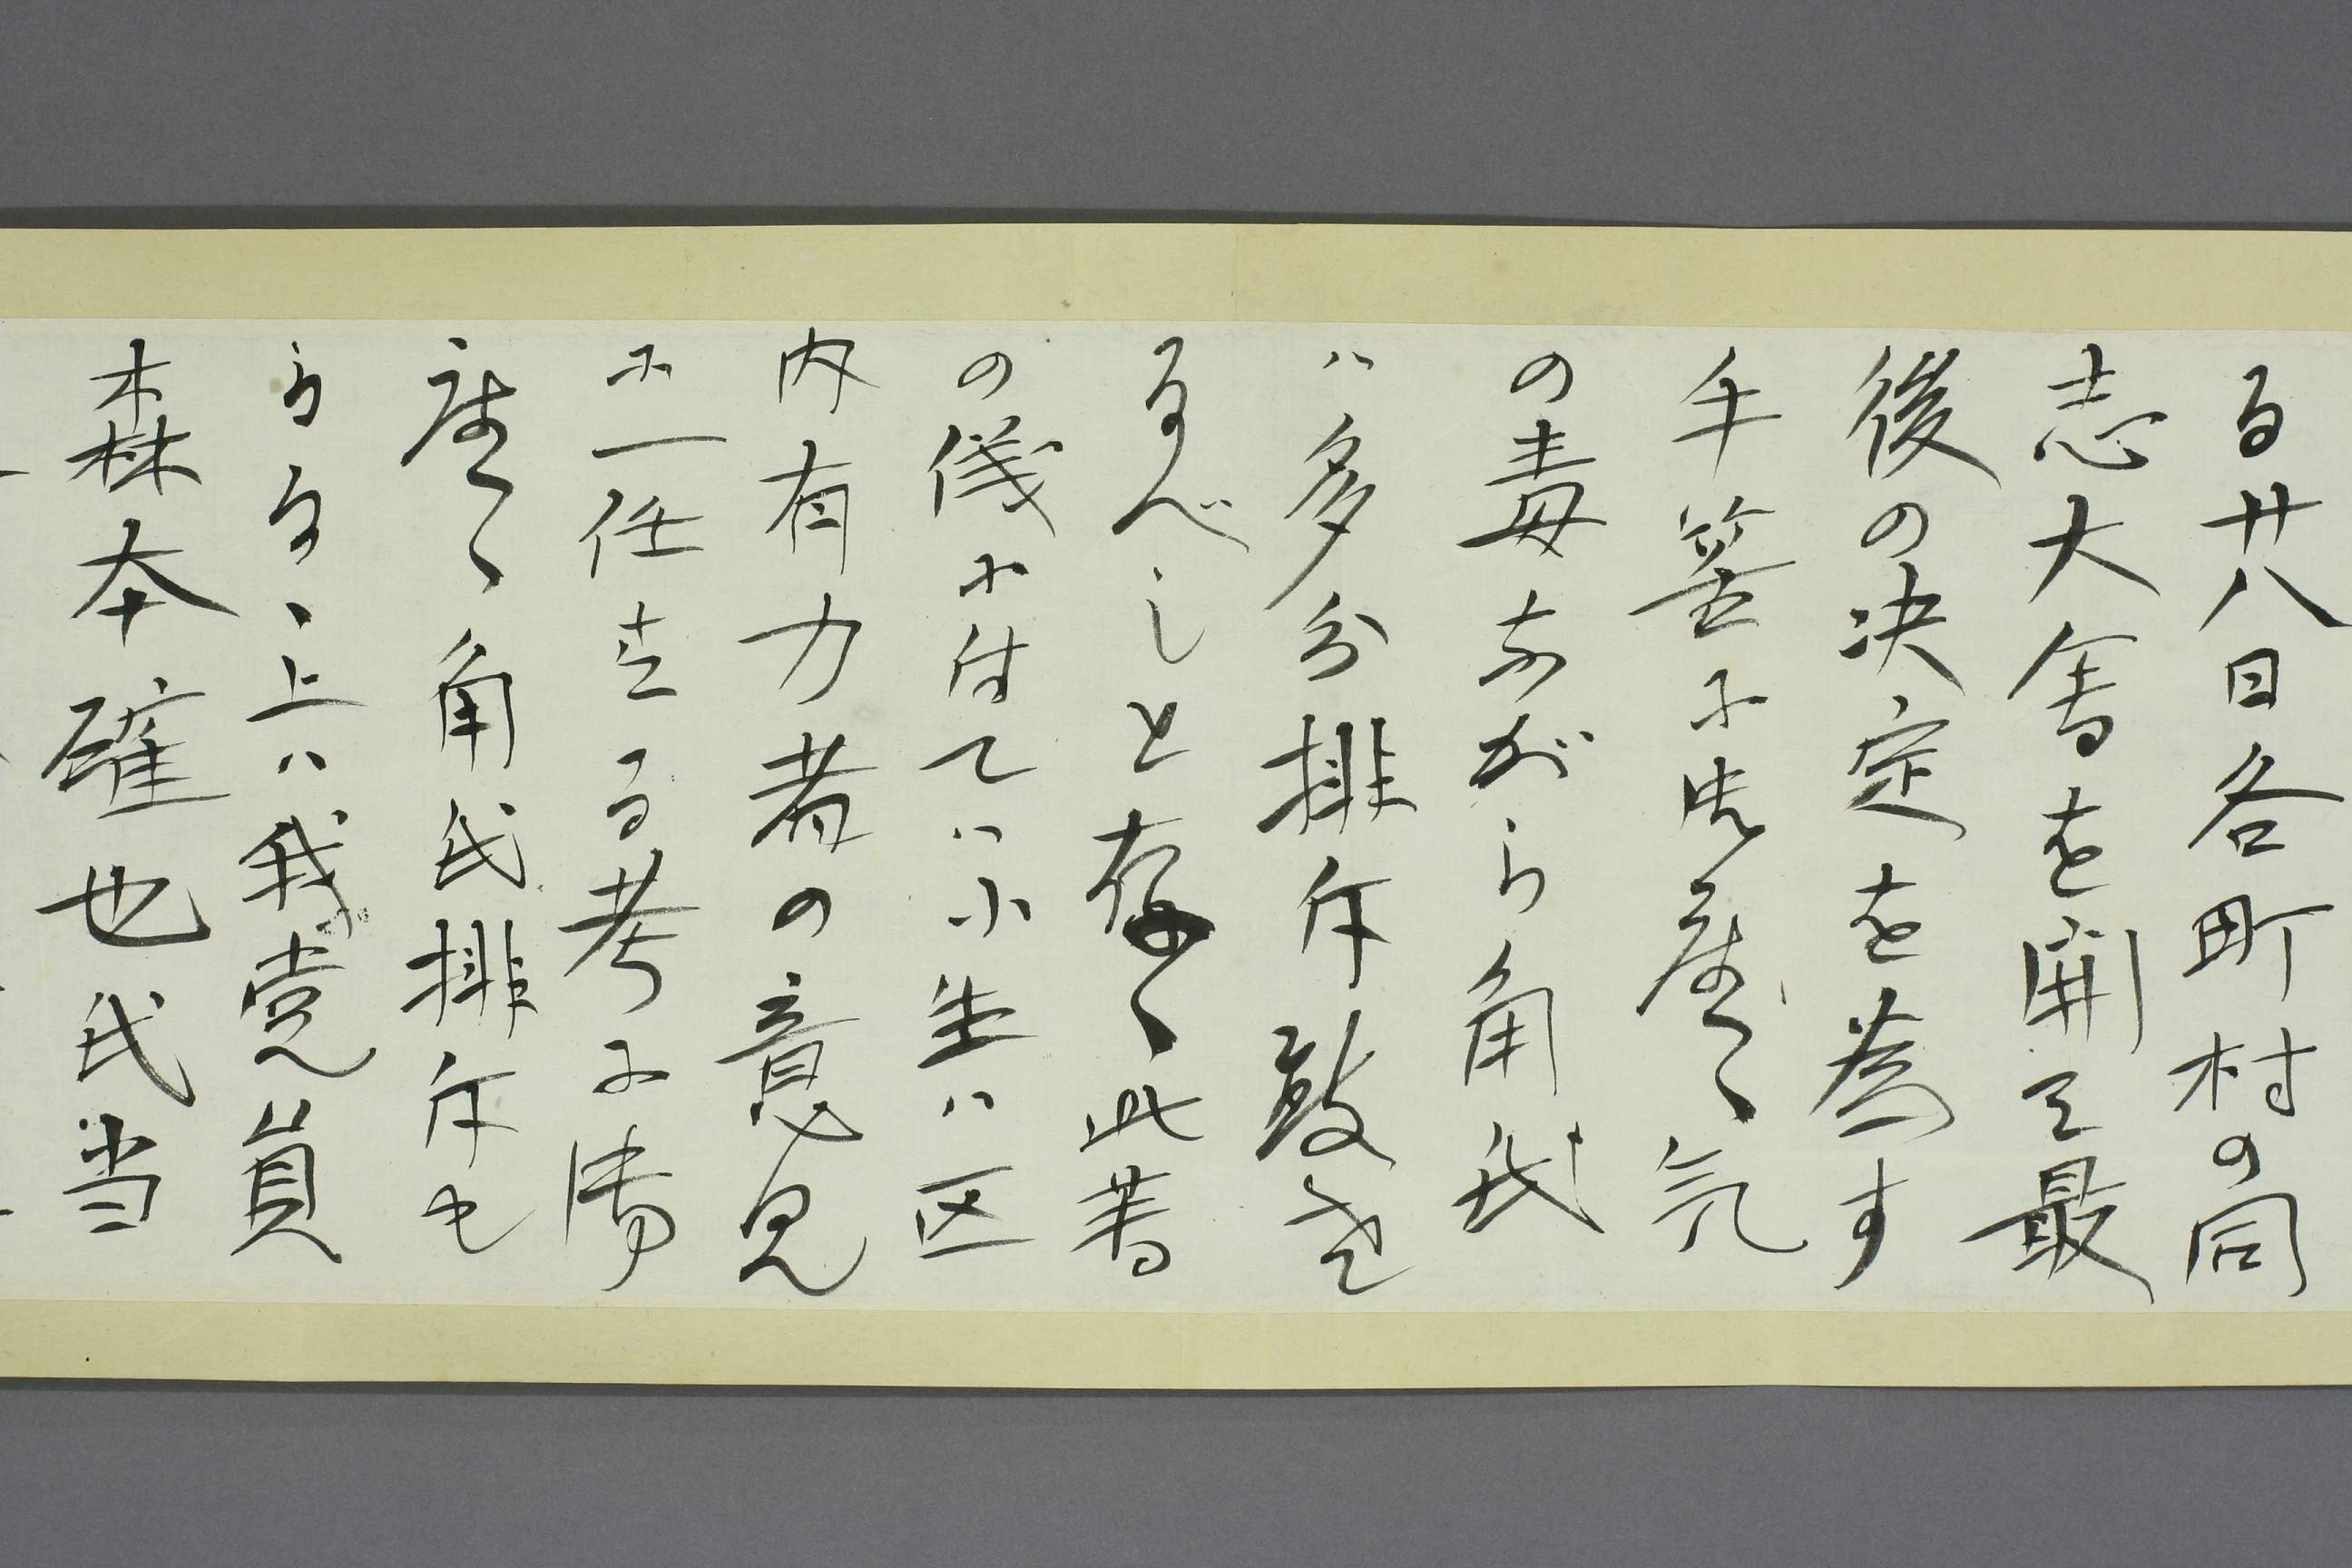 る廿八日各町村の同
志大会を開き最
後の決定を為す
手筈に御座候気
の毒ながら角氏
ハ多分排斥致さ
るべしと存候此等
の儀に付てハ小生ハ区
内有力者の意見
に一任する考に御
座候角氏排斥せ
らるゝ上ハ我党員
森本確也氏当